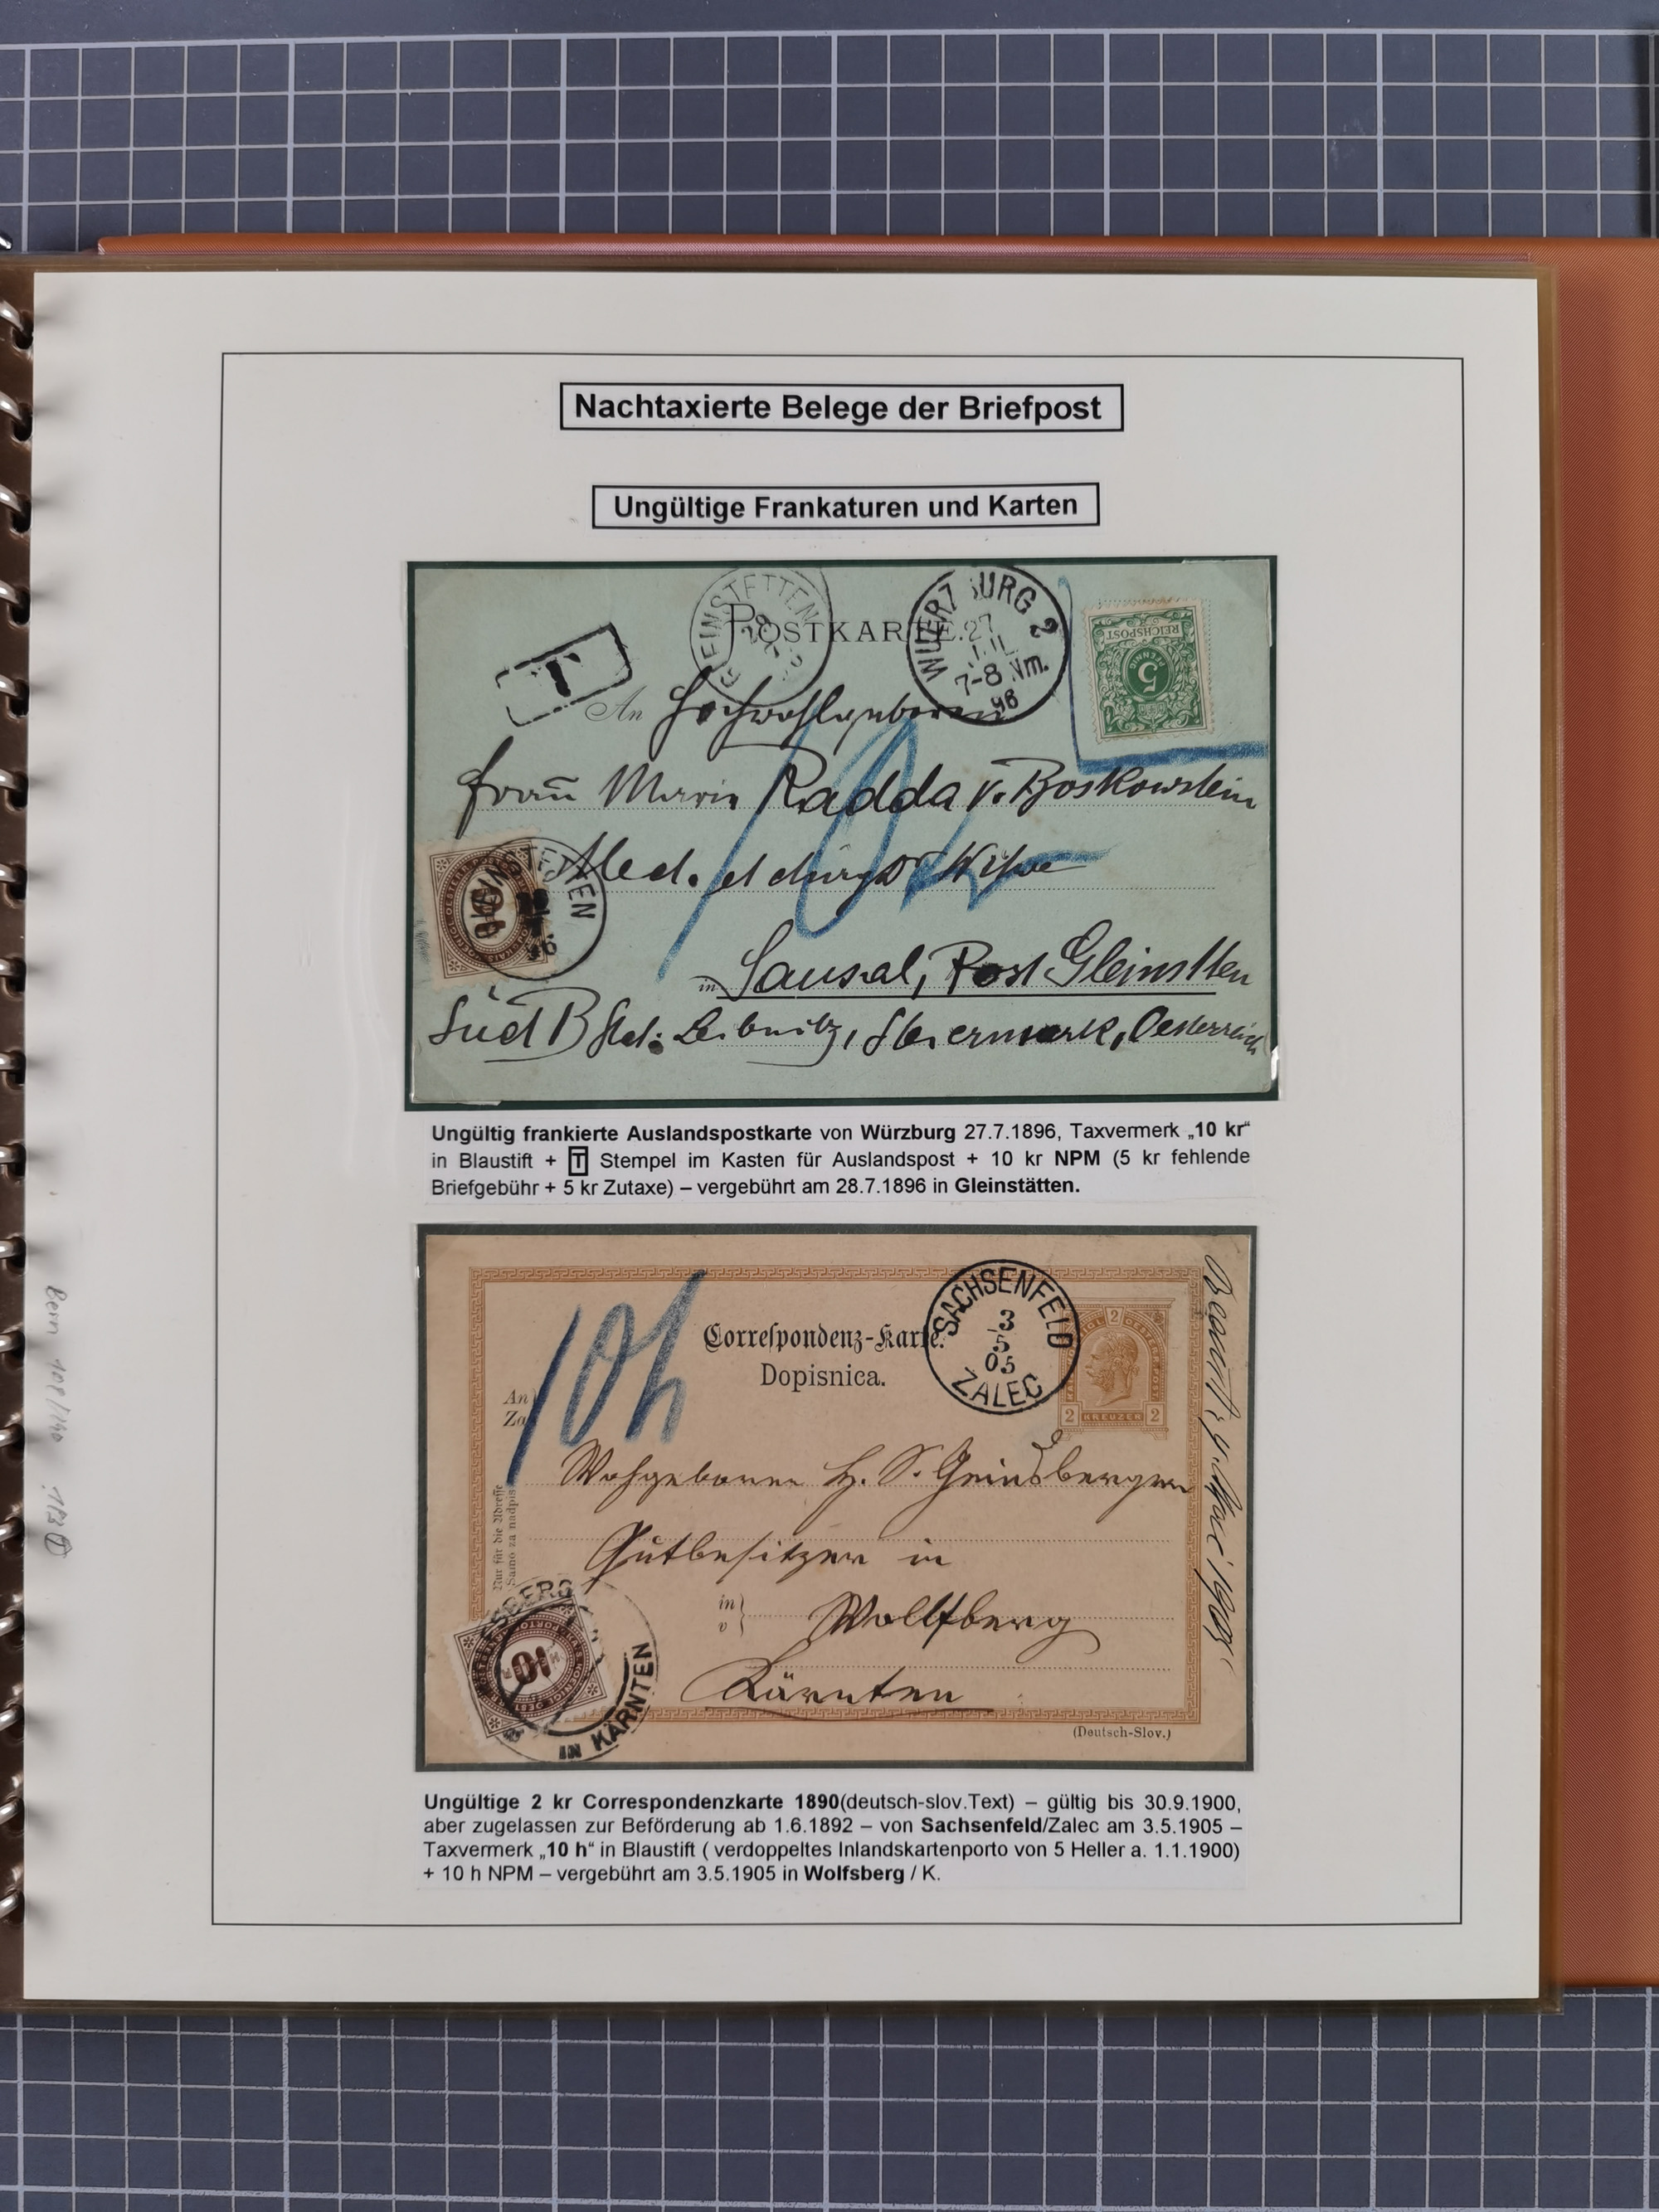 Nachtaxierte Belege der Briefpost
Ungültige Frankaturen und Karten
POSTKARTE.
WUERZBURG 2
27
7-8 Nm.
96
REICHSPOST
5
PFENNIG
T
An Hochwohlgeboren
Frau Maria Radda v. Boskowstein
Med. et chirurg Dr Witwe
10 kr
in Sausal, Post Gleinstten
Süd B Stat: Leibnitz, Steiermark, Oesterreich
Ungültig frankierte Auslandspostkarte von Würzburg 27.7.1896, Taxvermerk „10 kr“
in Blaustift + T Stempel im Kasten für Auslandspost + 10 kr NPM (5 kr fehlende
Briefgebühr + 5 kr Zutaxe) – vergebührt am 28.7.1896 in Gleinstätten.
10 h
Correspondenz-Karte.
Dopisnica.
SACHSENFELD
3
5
05
ZALEC
2
2 KREUZER 2
An
Za
Wohgeboren H. S.
Gutbesitzer in
in
v
Wolfberg
Kärnten
Nur für die Adresse
Samo za nadpis
10
IN KÄRNTEN
(Deutsch-Slov.)
Ungültige 2 kr Correspondenzkarte 1890(deutsch-slov.Text) – gültig bis 30.9.1900,
aber zugelassen zur Beförderung ab 1.6.1892 – von Sachsenfeld/Zalec am 3.5.1905 –
Taxvermerk „10 h“ in Blaustift ( verdoppeltes Inlandskartenporto von 5 Heller a. 1.1.1900)
+ 10 h NPM – vergebührt am 3.5.1905 in Wolfsberg / K.